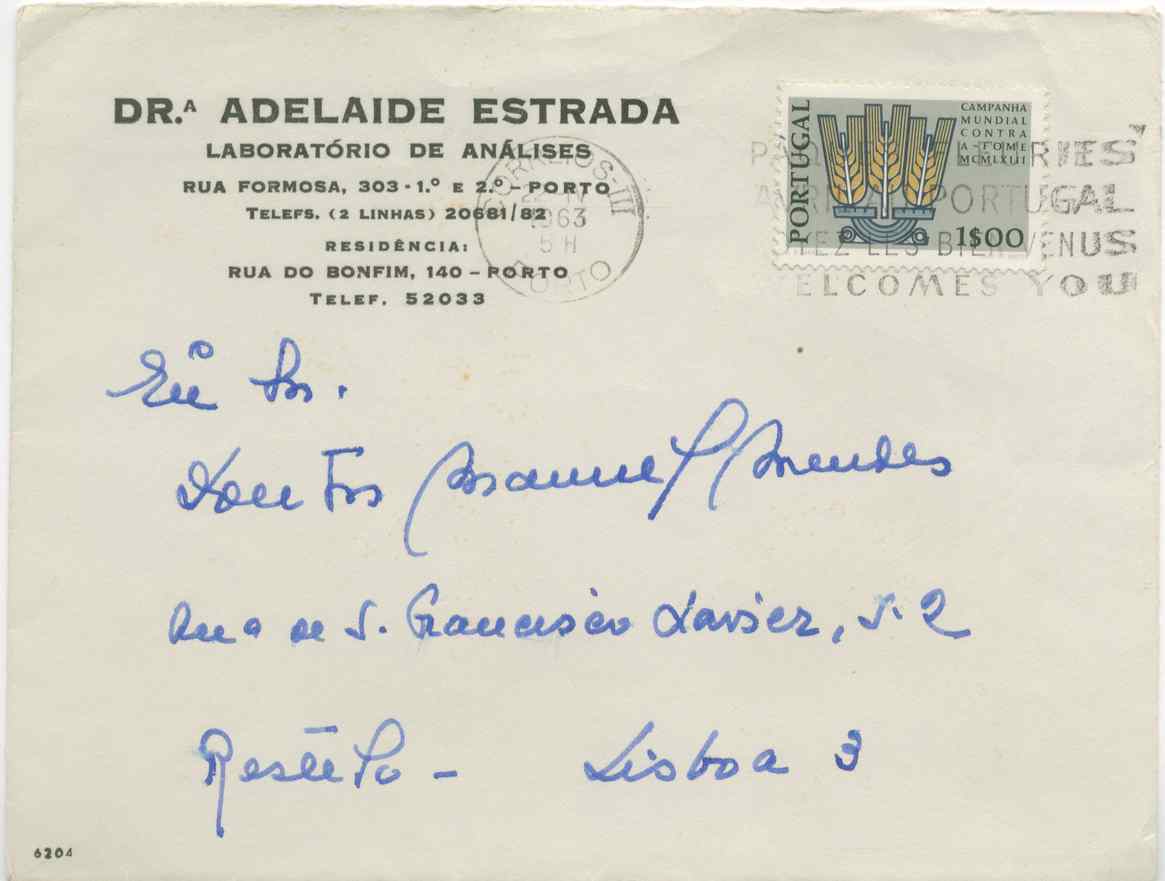 DR.ª ADELAIDE ESTRADA
LABORATÓRIO DE ANÁLISES
RUA FORMOSA, 303-1.º E 2.º - PORTO
TELEFS. (2 LINHAS) 20681/82
RESIDÊNCIA:
RUA DO BONFIM, 140 - PORTO
TELEF. 52033
CORREIOS-III
IV
1963
5 H
PORTO
PORTUGAL
CAMPANHA
MUNDIAL
CONTRA
A-FOME
MCMLXIII
1$00
PORTUGAL
LES BIENVENUS
WELCOMES YOU
Sr.
Manuel Mendes
Rua de S. Francisco Xavier, 2
Restêlo - Lisboa 3
6204